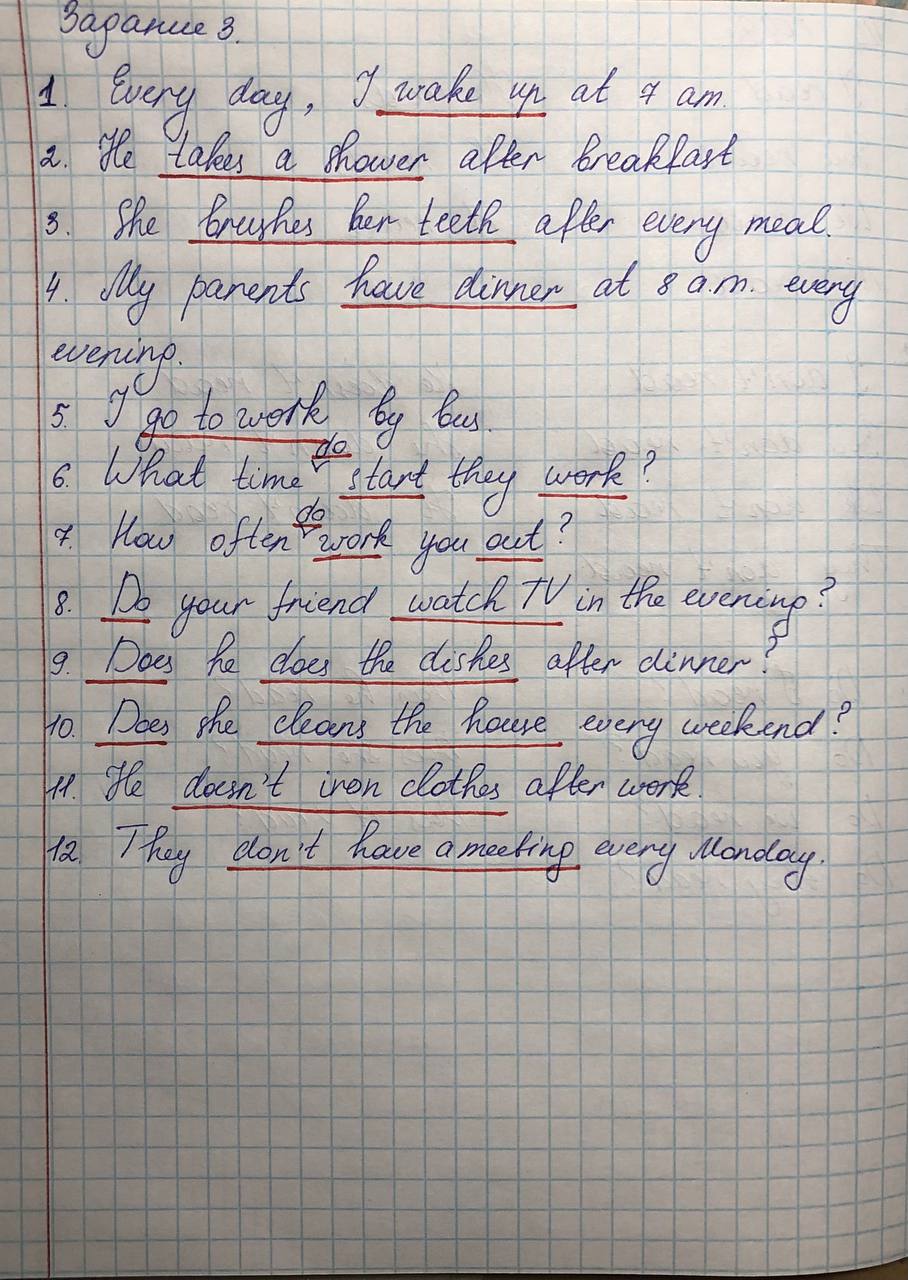 Задание 3.
1. Every day, I wake up at 7 am.
2. He takes a shower after breakfast
3. She brushes her teeth after every meal.
4. My parents have dinner at 8 a.m. every
evening.
5. I go to work by bus.
do
6. What time start they work?
do
7. How often work you out?
8. Do your friend watch TV in the evening?
9. Does he does the dishes after dinner?
10. Does she cleans the house every weekend?
11. He doesn't iron clothes after work.
12. They don't have a meeting every Monday.